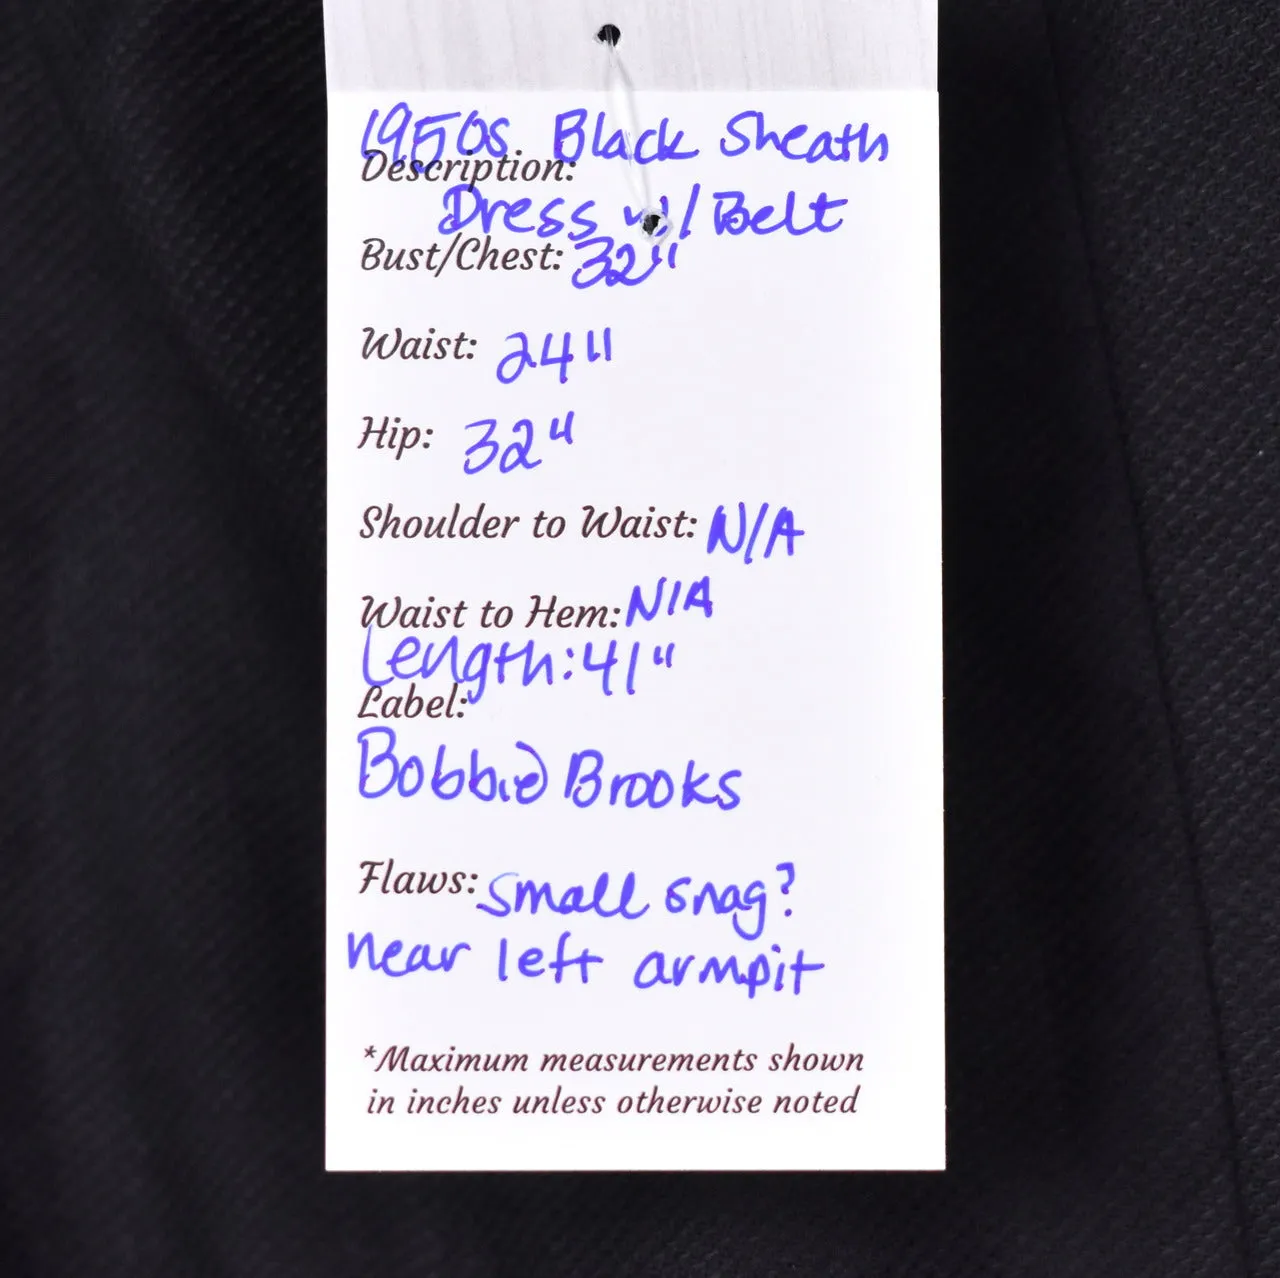 1950s Black Sheath
Description:
Dress w/ Belt
Bust/Chest: 32"
Waist: 24"
Hip: 32"
Shoulder to Waist: N/A
Waist to Hem: N/A
Length: 41"
Label:
Bobbie Brooks
Flaws: Small snag?
near left armpit
*Maximum measurements shown
in inches unless otherwise noted